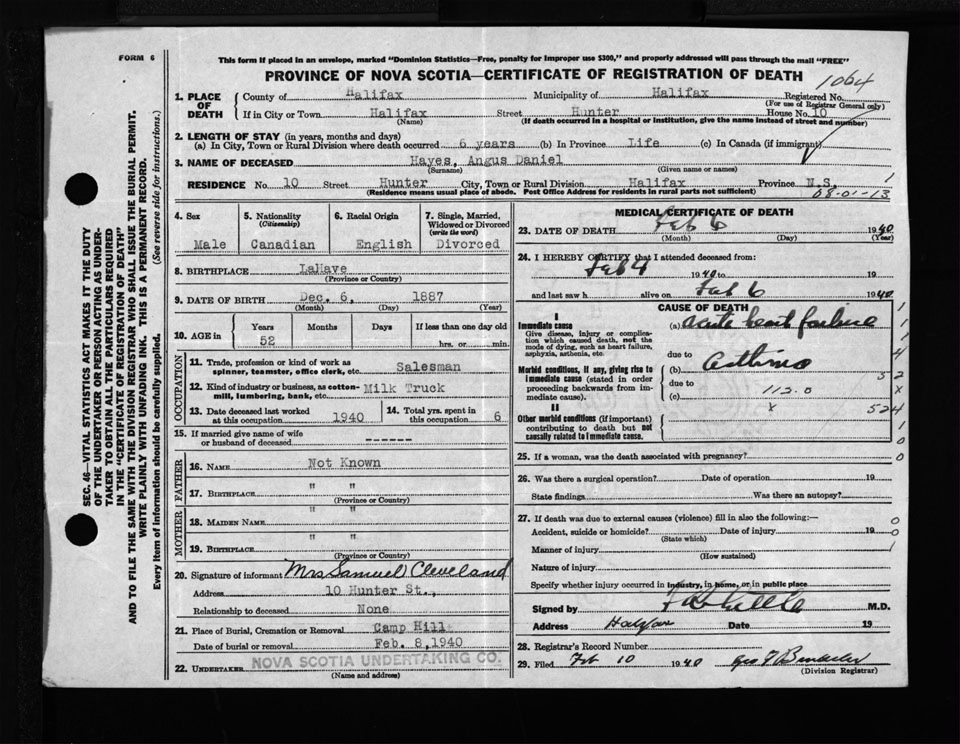 FORM 6
This form if placed in an envelope, marked "Dominion Statistics—Free, penalty for improper use $300," and properly addressed will pass through the mail "FREE"
PROVINCE OF NOVA SCOTIA—CERTIFICATE OF REGISTRATION OF DEATH
1064
1. PLACE OF DEATH County of Halifax Municipality of Halifax Registered No.
(For use of Registrar General only)
If in City or Town Halifax Street Hunter House No. 10
(Name) (If death occurred in a hospital or institution, give the name instead of street and number)
2. LENGTH OF STAY (in years, months and days)
(a) In City, Town or Rural Division where death occurred 6 years (b) In Province Life (c) In Canada (if immigrant)
3. NAME OF DECEASED Hayes, Angus Daniel
(Surname) (Given name or names)
RESIDENCE No. 10 Street Hunter City, Town or Rural Division Halifax Province N.S. 1
(Residence means usual place of abode. Post Office Address for residents in rural parts not sufficient) 08-01-13
4. Sex Male
5. Nationality (Citizenship) Canadian
6. Racial Origin English
7. Single, Married, Widowed or Divorced (write the word) Divorced
8. BIRTHPLACE LaHave
(Province or Country)
9. DATE OF BIRTH Dec. 6, 1887
(Month) (Day) (Year)
10. AGE in Years Months Days If less than one day old
52 hrs. or min.
OCCUPATION
11. Trade, profession or kind of work as spinner, teamster, office clerk, etc. Salesman
12. Kind of industry or business, as cotton-mill, lumbering, bank, etc. Milk Truck
13. Date deceased last worked at this occupation 1940
14. Total yrs. spent in this occupation 6
15. If married give name of wife or husband of deceased ------
FATHER
16. NAME Not Known
17. BIRTHPLACE " "
(Province or Country)
MOTHER
18. MAIDEN NAME " "
19. BIRTHPLACE " "
(Province or Country)
20. Signature of informant Mrs Samuel Cleveland
Address 10 Hunter St.,
Relationship to deceased None
21. Place of Burial, Cremation or Removal Camp Hill
Date of burial or removal Feb. 8, 1940
22. UNDERTAKER NOVA SCOTIA UNDERTAKING CO.
(Name and address)
MEDICAL CERTIFICATE OF DEATH
23. DATE OF DEATH Feb 6 1940
(Month) (Day) (Year)
24. I HEREBY CERTIFY that I attended deceased from:
Feb 4 1940 to 19
and last saw h alive on Feb 6 1940
CAUSE OF DEATH
I
Immediate cause
Give disease, injury or complication which caused death, not the mode of dying, such as heart failure, asphyxia, asthenia, etc.
(a) acute heart failure
due to
Morbid conditions, if any, giving rise to immediate cause (stated in order proceeding backwards from immediate cause).
(b) Asthma
due to
(c) 112.0
II
Other morbid conditions (if important) contributing to death but not causally related to immediate cause.
x
1
1
1
4
32
x
524
1
0
25. If a woman, was the death associated with pregnancy? 0
26. Was there a surgical operation? Date of operation 19
State findings Was there an autopsy?
27. If death was due to external causes (violence) fill in also the following:— 0
Accident, suicide or homicide? Date of injury 19 0
(State which)
Manner of injury 1
(How sustained)
Nature of injury
Specify whether injury occurred in industry, in home, or in public place
Signed by M.D.
Address Halifax Date 19
28. Registrar's Record Number
29. Filed Feb 10 1940 Geo
(Division Registrar)
SEC. 46—VITAL STATISTICS ACT MAKES IT THE DUTY
OF THE UNDERTAKER OR PERSON ACTING AS UNDER-
TAKER TO OBTAIN ALL THE PARTICULARS REQUIRED
IN THE "CERTIFICATE OF REGISTRATION OF DEATH"
AND TO FILE THE SAME WITH THE DIVISION REGISTRAR WHO SHALL ISSUE THE BURIAL PERMIT.
WRITE PLAINLY WITH UNFADING INK. THIS IS A PERMANENT RECORD.
Every item of information should be carefully supplied. (See reverse side for instructions.)